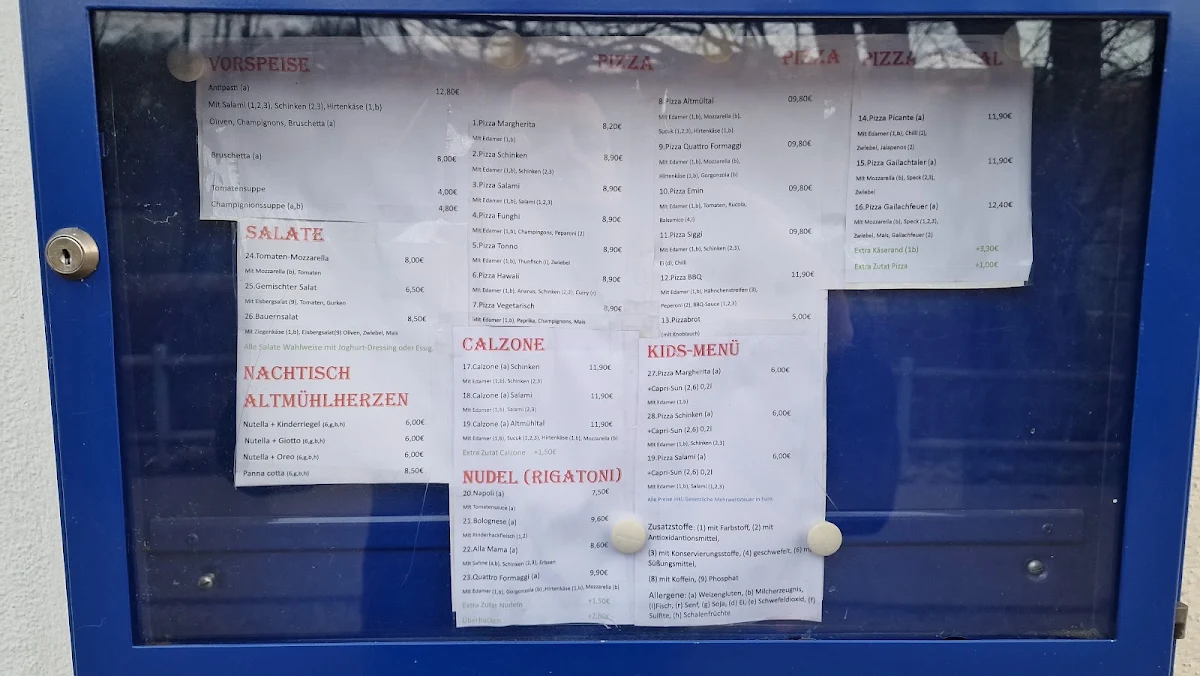 VORSPEISE
Antipasti (a) 12,80€
Mit Salami (1,2,3), Schinken (2,3), Hirtenkäse (1,b)
Oliven, Champignons, Bruschetta (a)
Bruschetta (a) 8,00€
Tomatensuppe 4,00€
Champignionssuppe (a,b) 4,80€
SALATE
24.Tomaten-Mozzarella 8,00€
Mit Mozzarella (b), Tomaten
25.Gemischter Salat 6,50€
Mit Eisbergsalat (9), Tomaten, Gurken
26.Bauernsalat 8,50€
Mit Ziegenkäse (1,b), Eisbergsalat(9) Oliven, Zwiebel, Mais
Alle Salate Wahlweise mit Joghurt-Dressing oder Essig
NACHTISCH
ALTMÜHLHERZEN
Nutella + Kinderriegel (6,g,b,h) 6,00€
Nutella + Giotto (6,g,b,h) 6,00€
Nutella + Oreo (6,g,b,h) 6,00€
Panna cotta (6,g,b,h) 8,50€
PIZZA
1.Pizza Margherita 8,20€
Mit Edamer (1,b)
2.Pizza Schinken 8,90€
Mit Edamer (1,b), Schinken (2,3)
3.Pizza Salami 8,90€
Mit Edamer (1,b), Salami (1,2,3)
4.Pizza Funghi 8,90€
Mit Edamer (1,b), Champingons, Peparoni (2)
5.Pizza Tonno 8,90€
Mit Edamer (1,b), Thunfisch (i), Zwiebel
6.Pizza Hawaii 8,90€
Mit Edamer (1,b), Ananas, Schinken (2,3), Curry (r)
7.Pizza Vegetarisch 8,90€
Mit Edamer (1,b), Paprika, Champignons, Mais
CALZONE
17.Calzone (a) Schinken 11,90€
Mit Edamer (1,b), Schinken (2,3)
18.Calzone (a) Salami 11,90€
Mit Edamer (1,b), Salami (2,3)
19.Calzone (a) Altmühltal 11,90€
Mit Edamer (1,b), Sucuk (1,2,3), Hirtenkäse (1,b), Mozzarella (b)
Extra Zutat Calzone +1,50€
NUDEL (RIGATONI)
20.Napoli (a) 7,50€
Mit Tomatensauce (a)
21.Bolognese (a) 9,60€
Mit Rinderhackfleisch (1,2)
22.Alla Mama (a) 8,60€
Mit Sahne (4,b), Schinken (2,3), Erbsen
23.Quattro Formaggi (a) 9,90€
Mit Edamer (1,b), Gorgonzola (b), Hirtenkäse (1,b), Mozzarella (b)
Extra Zutat Nudeln +1,50€
Überbacken
PIZZA
8.Pizza Altmültal 09,80€
Mit Edamer (1,b), Mozzarella (b),
Sucuk (1,2,3), Hirtenkäse (1,b)
9.Pizza Quattro Formaggi 09,80€
Mit Edamer (1,b), Mozzarella (b),
Hirtenkäse (1,b), Gorgonzola (b)
10.Pizza Emin 09,80€
Mit Edamer (1,b), Tomaten, Rucola,
Balsamico (4,r)
11.Pizza Siggi 09,80€
Mit Edamer (1,b), Schinken (2,3),
Ei (d), Chili
12.Pizza BBQ 11,90€
Mit Edamer (1,b), Hähnchenstreifen (3),
Peperoni (2), BBQ-Sauce (1,2,3)
13.Pizzabrot 5,00€
(mit Knoblauch)
KIDS-MENÜ
27.Pizza Margherita (a) 6,00€
+Capri-Sun (2,6) 0,2l
Mit Edamer (1,b)
28.Pizza Schinken (a) 6,00€
+Capri-Sun (2,6) 0,2l
Mit Edamer (1,b), Schinken (2,3)
19.Pizza Salami (a) 6,00€
+Capri-Sun (2,6) 0,2l
Mit Edamer (1,b), Salami (1,2,3)
Alle Preise inkl. Gesetzliche Mehrwertsteuer in Euro.
Zusatzstoffe: (1) mit Farbstoff, (2) mit
Antioxidantionsmittel,
(3) mit Konservierungsstoffe, (4) geschwefelt, (6) m
Süßungsmittel,
(8) mit Koffein, (9) Phosphat
Allergene: (a) Weizengluten, (b) Milcherzeugnis,
(i)Fisch, (r) Senf, (g) Soja, (d) Ei, (e) Schwefeldioxid, (f)
Sulfite, (h) Schalenfrüchte
PIZZA
14.Pizza Picante (a) 11,90€
Mit Edamer (1,b), Chilli (2),
Zwiebel, Jalapenos (2)
15.Pizza Gailachtaler (a) 11,90€
Mit Mozzarella (b), Speck (2,3),
Zwiebel
16.Pizza Gailachfeuer (a) 12,40€
Mit Mozzarella (b), Speck (1,2,3),
Zwiebel, Mais, Gailachfeuer (2)
Extra Käserand (1b) +3,30€
Extra Zutat Pizza +1,00€